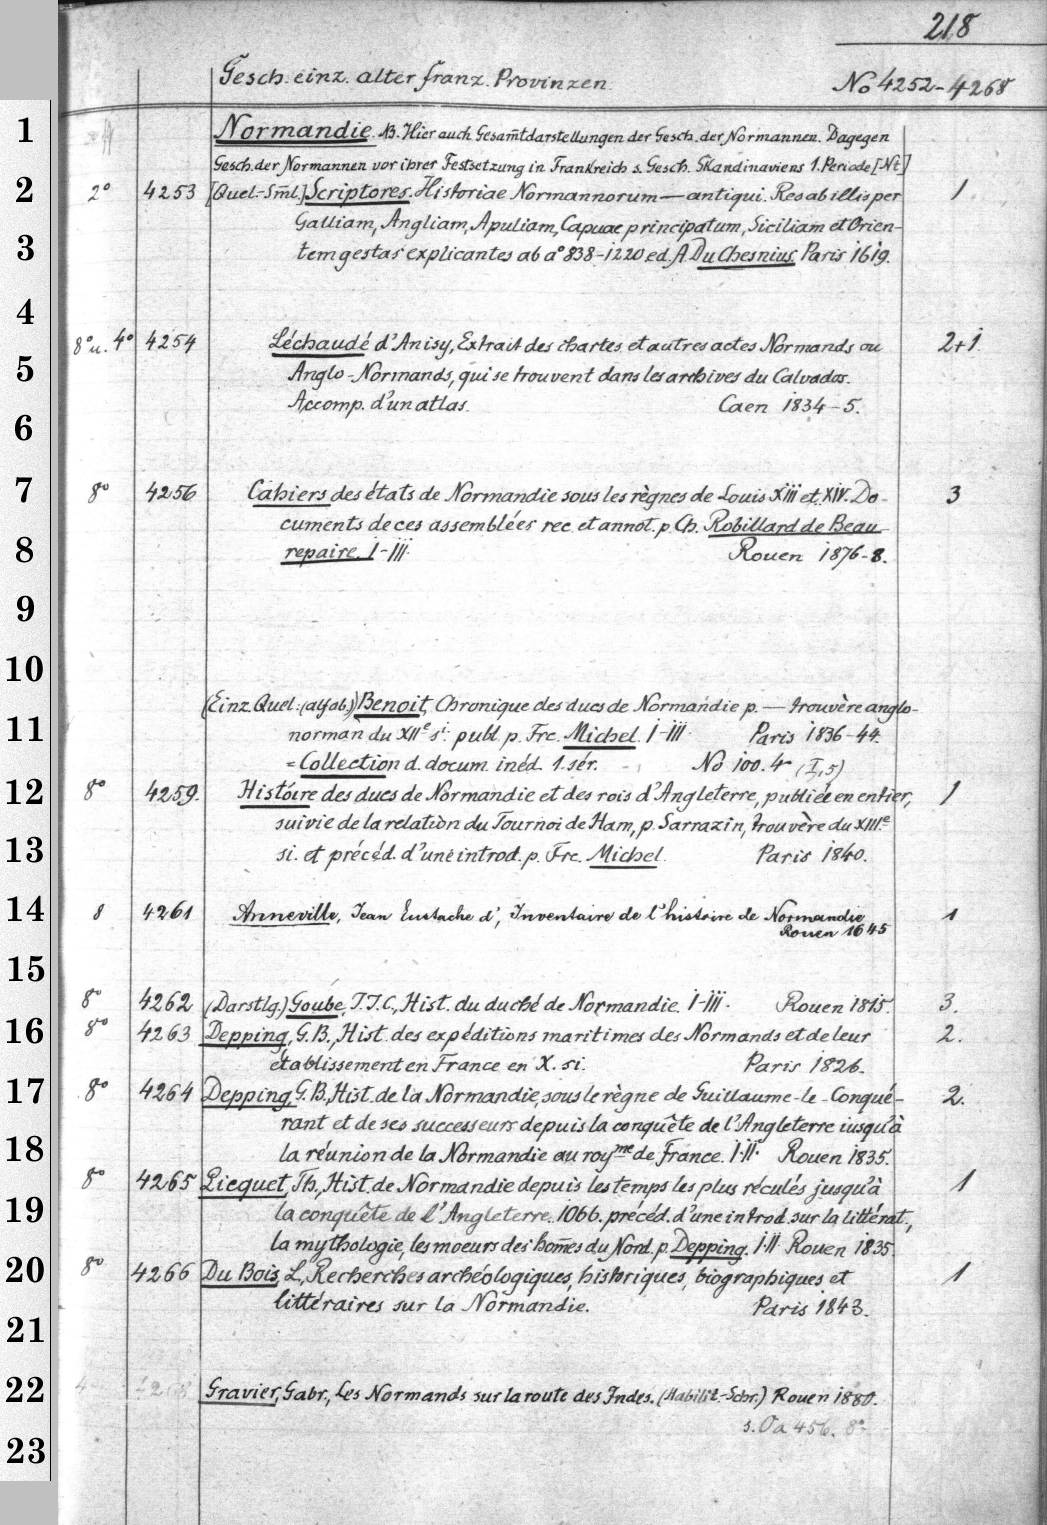 218
Gesch. einz. alter franz. Provinzen. No 4252-4268
1
Normandie. NB. Hier auch Gesam̄tdarstellungen der Gesch. der Normannen. Dagegen
Gesch. der Normannen vor ihrer Festsetzung in Frankreich s. Gesch. Skandinaviens 1. Periode [Nt]
2 2° 4253 [Quel.-Sm̄l.] Scriptores. Historiae Normannorum — antiqui. Res ab illis per 1
Galliam, Angliam, Apuliam, Capuae principatum, Siciliam et Orien-
3 tem gestas explicantes ab a° 838-1220 ed. A. Du Chesnius. Paris 1619.
4
8° u. 4° 4254 Léchaudé d'Anisy, Extrait des chartes et autres actes Normands ou 2+1
5 Anglo-Normands, qui se trouvent dans les archives du Calvados.
Accomp. d'un atlas. Caen 1834-5.
6
7 8° 4256 Cahiers des états de Normandie sous les règnes de Louis XIII et XIV. Do- 3
cuments de ces assemblées rec. et annot. p. Ch. Robillard de Beau-
8 repaire. I-III. Rouen 1876-8.
9
10
(Einz. Quel.: (alfab.)) Benoit, Chronique des ducs de Normandie p. — trouvère anglo-
11 norman du XIIe si. publ. p. Frc. Michel. I-III. Paris 1836-44.
= Collection d. docum. inéd. 1. sér. No 100. 4° (I,5)
12 8° 4259. Histoire des ducs de Normandie et des rois d'Angleterre, publiée en entier, 1
suivie de la relation du Tournoi de Ham, p. Sarrazin, trouvère du XIIIe
13 si. et précéd. d'une introd. p. Frc. Michel. Paris 1840.
14 8 4261 Anneville, Jean Eustache d', Inventaire de l'histoire de Normandie 1
Rouen 1645
15
8° 4262 (Darstlg.) Goube, J.J.C., Hist. du duché de Normandie. I-III. Rouen 1815. 3.
16 8° 4263 Depping, G.B., Hist. des expéditions maritimes des Normands et de leur 2.
établissement en France en X. si. Paris 1826.
17 8° 4264 Depping, G.B., Hist. de la Normandie, sous le règne de Guillaume-le-Conqué- 2.
rant et de ses successeurs depuis la conquête de l'Angleterre iusqu'à
18 la réunion de la Normandie au royme de France. I-II. Rouen 1835.
8° 4265 Licquet, Th., Hist. de Normandie depuis les temps les plus réculés jusqu'à 1
19 la conquête de l'Angleterre. 1066. précéd. d'une introd. sur la littérat.,
la mythologie, les moeurs des hom̄es du Nord. p. Depping. I-II. Rouen 1835.
20 8° 4266 Du Bois, L., Recherches archéologiques, historiques, biographiques et 1
littéraires sur la Normandie. Paris 1843.
21
22 Gravier, Gabr., Les Normands sur la route des Indes. (Habilit.-Schr.) Rouen 1880.
s. Oa 456. 8°
23